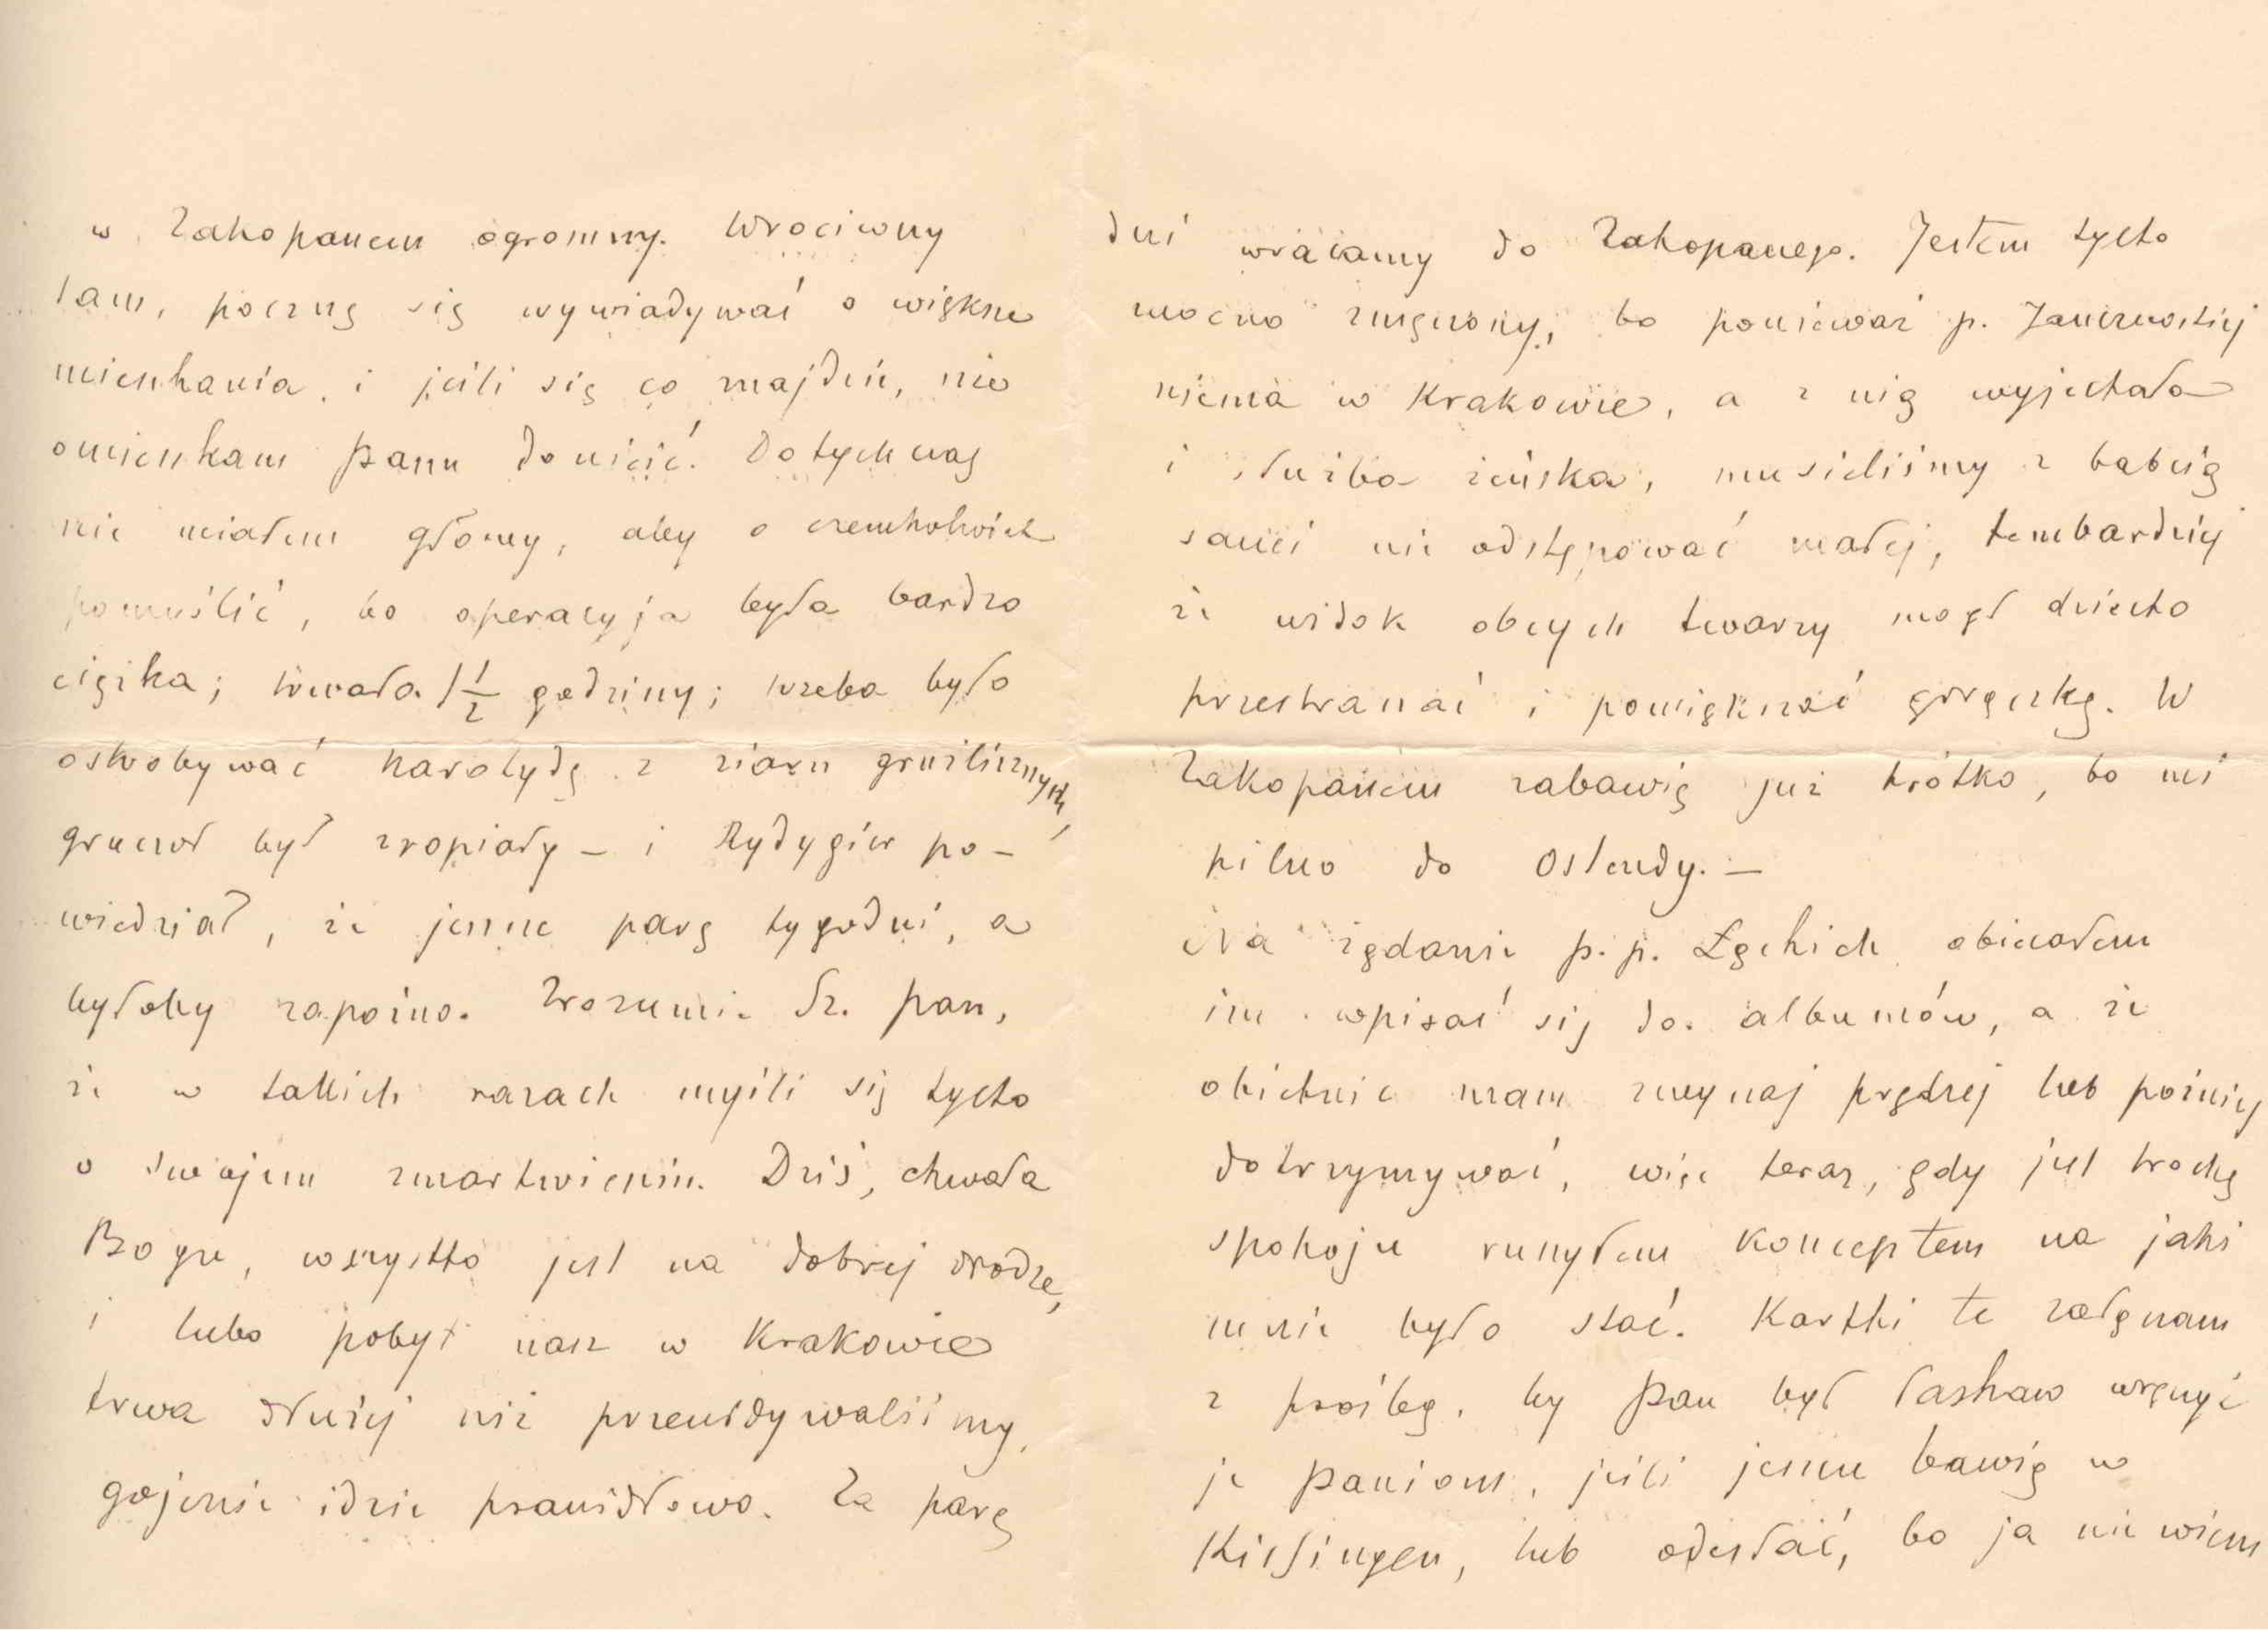 w Zakopanem ogromny. Wrociwszy
tam, poczng się wywiadywać o większe
mieszkania, i jeśli się co znajdzie, nie
omieszkam Panu donieść. Dotychczas
nie miałem głowy, aby o czemkolwiek
pomyślić, bo operacyja była bardzo
ciężka; trwała 1 1/2 godziny; trzeba było
oskrobywać karotydę z ziarn gruźlicznych,
gruczoł był zropiały – i Rydygier po-
wiedział, że jeszcze parę tygodni, a
byłoby zapoźno. Zrozumie Sz. Pan,
że w takich razach myśli się tylko
o swojem zmartwieniu. Dziś, chwała
Bogu, wszystko jest na dobrej drodze,
i lubo pobyt nasz w Krakowie
trwa dłużej niż przewidywaliśmy,
gojenie idzie prawidłowo. Za parę
dni wracamy do Zakopanego. Jestem tylko
mocno zmęczony, bo ponieważ p. Janczewskiej
niema w Krakowie, a z nią wyjechała
i służba żeńska, musieliśmy z babcią
sami nie odstępować małej, tembardziej
że widok obcych twarzy mogł dziecko
przestraszać i powiększać gorączkę. W
Zakopanem zabawię już krótko, bo mi
pilno do Ostendy. –
Na żądanie p.p. Łąckich obiecałem
im wpisać się do albumów, a że
obietnic mam zwyczaj prędzej lub poźniej
dotrzymywać, więc teraz, gdy jest trochę
spokoju ruszyłem konceptem na jaki
mnie było stać. Kartki te załączam
z prośbą, by Pan był łaskaw wręczyć
je Paniom, jeśli jeszcze bawią w
Kissingen, lub odesłać, bo ja nie wiem